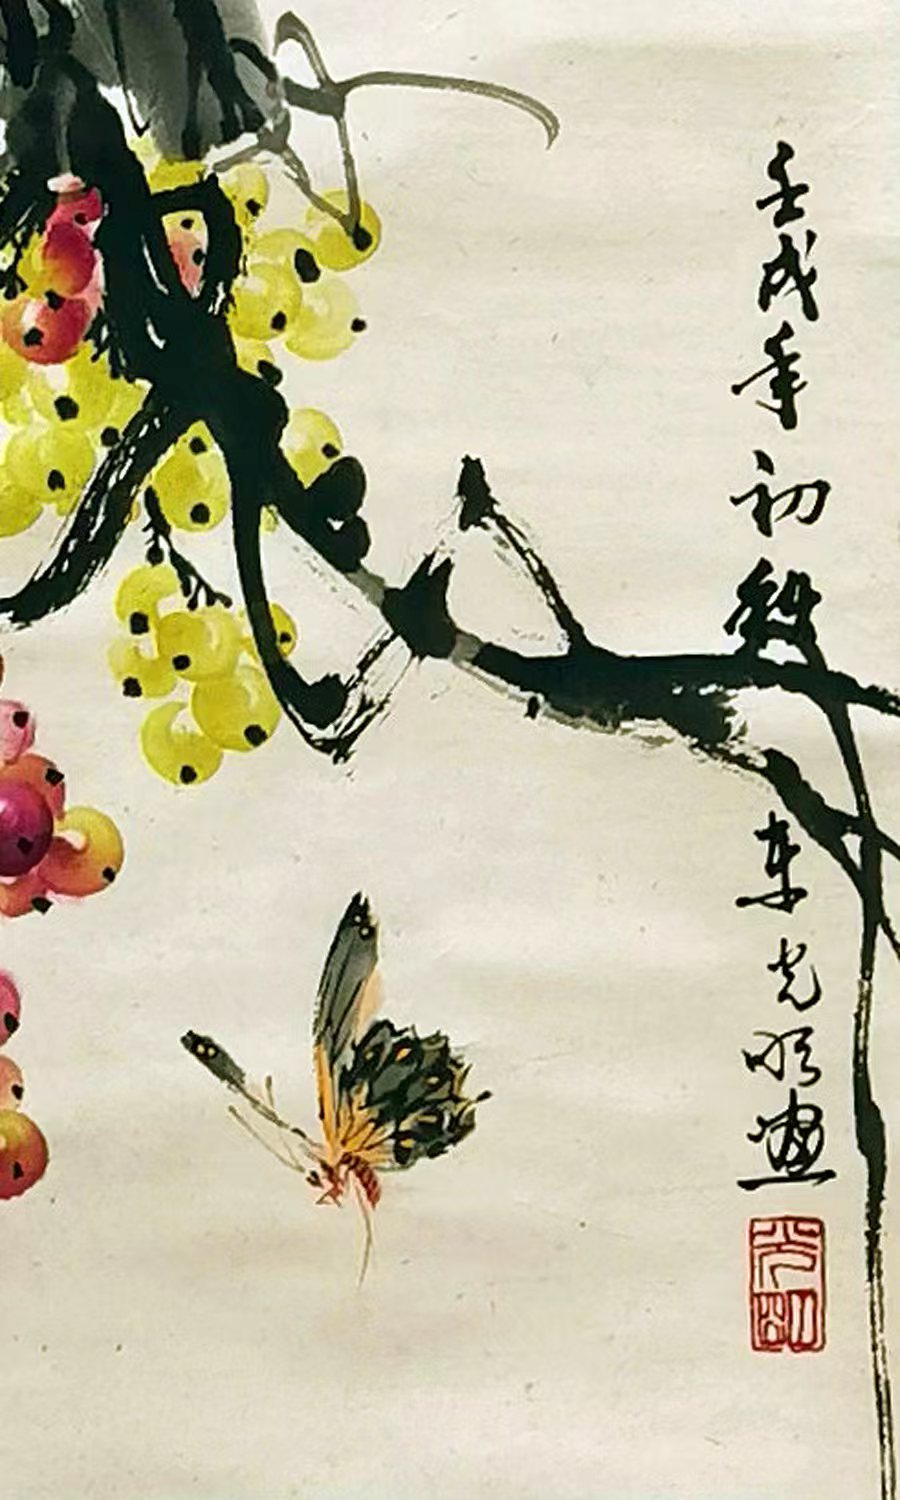 壬戌年初秋
东光明画
光明